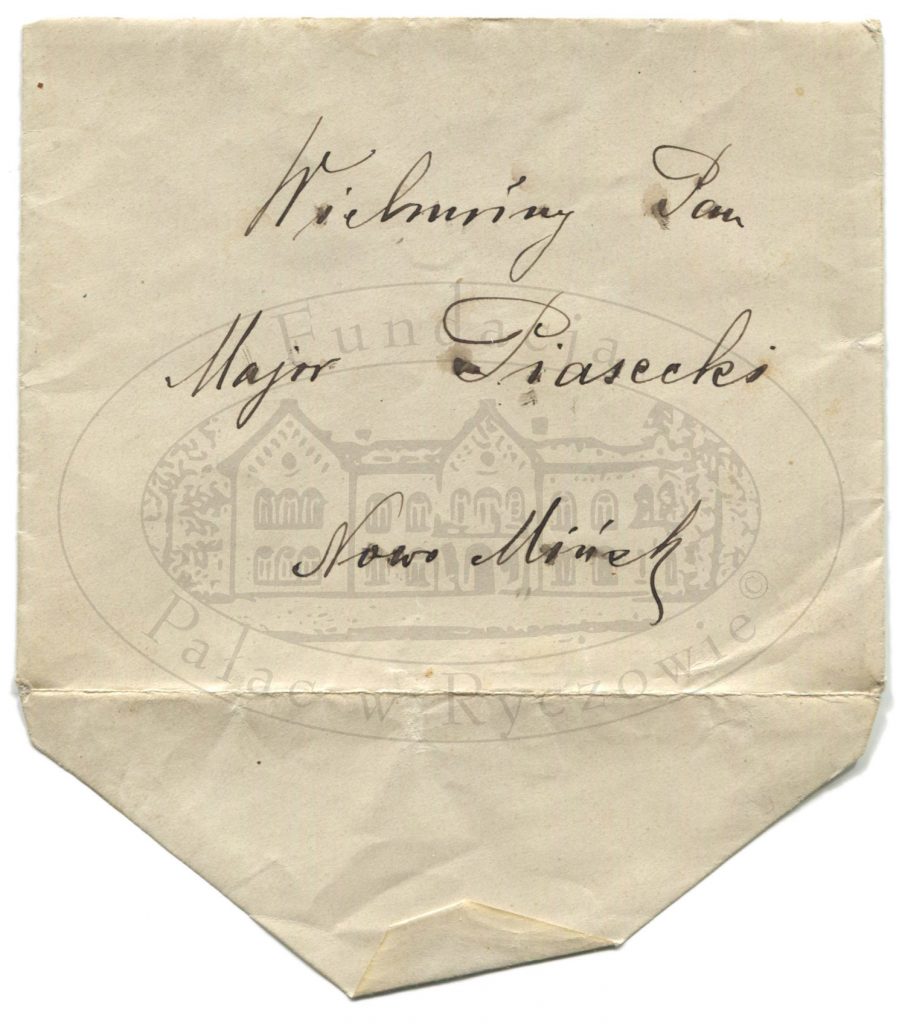 Wielmożny Pan
Major Piasecki
Nowo Mińsk
Fundacja
Pałac w Ryczowie ©